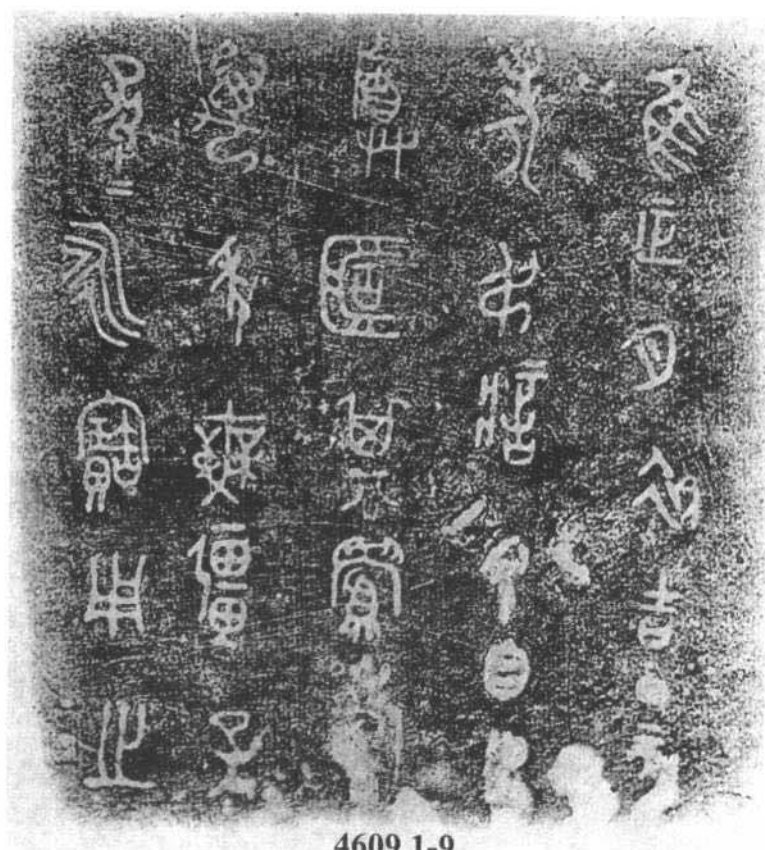 隹正月初吉丁亥
考叔父自乍
尊匠其眉壽
萬年無彊子
孫=永寶用之
4609.1-9